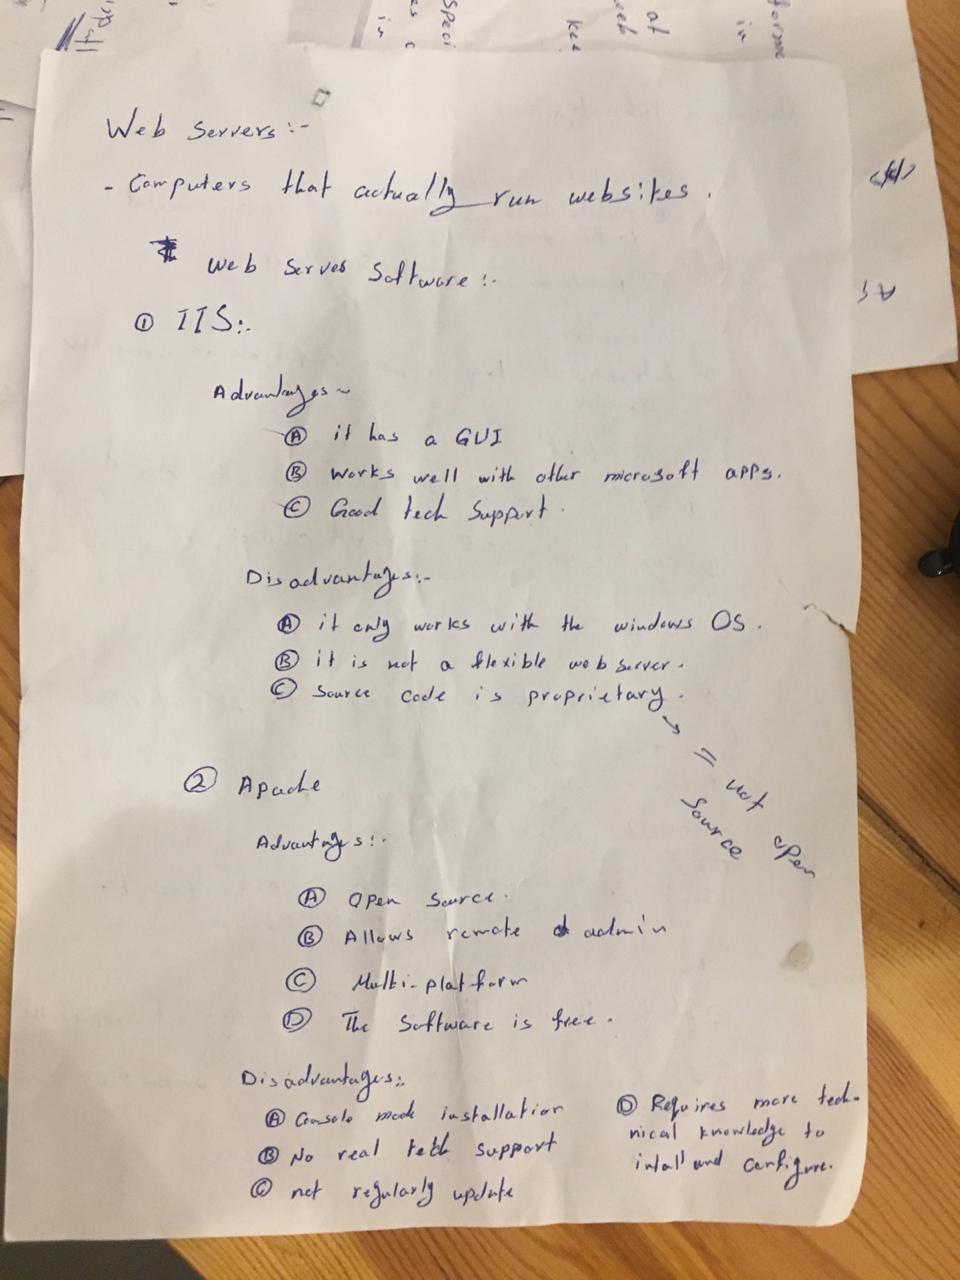 Web Servers:-
- Computers that actually run websites.
Web Serves Software:-
① IIS:-
Advantages-
Ⓐ it has a GUI
Ⓑ Works well with other microsoft apps.
Ⓒ Good tech support.
Disadvantages:-
Ⓐ it only works with the windows OS.
Ⓑ it is not a flexible web server.
Ⓒ Source code is proprietary.
→ = not open
source
② Apache
Advantages:-
Ⓐ Open Source.
Ⓑ Allows remote admin
Ⓒ Multi-platform
Ⓓ The software is free.
Disadvantages:-
Ⓐ Console mode installation
Ⓑ No real tech support
Ⓒ not regularly update
Ⓓ Requires more tech-
nical knowledge to
intall and configure.